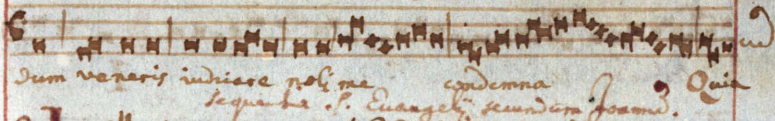 dum veneris iudicare noli me condemna Quia
sequentia S. Euangelij secundum Joannē.